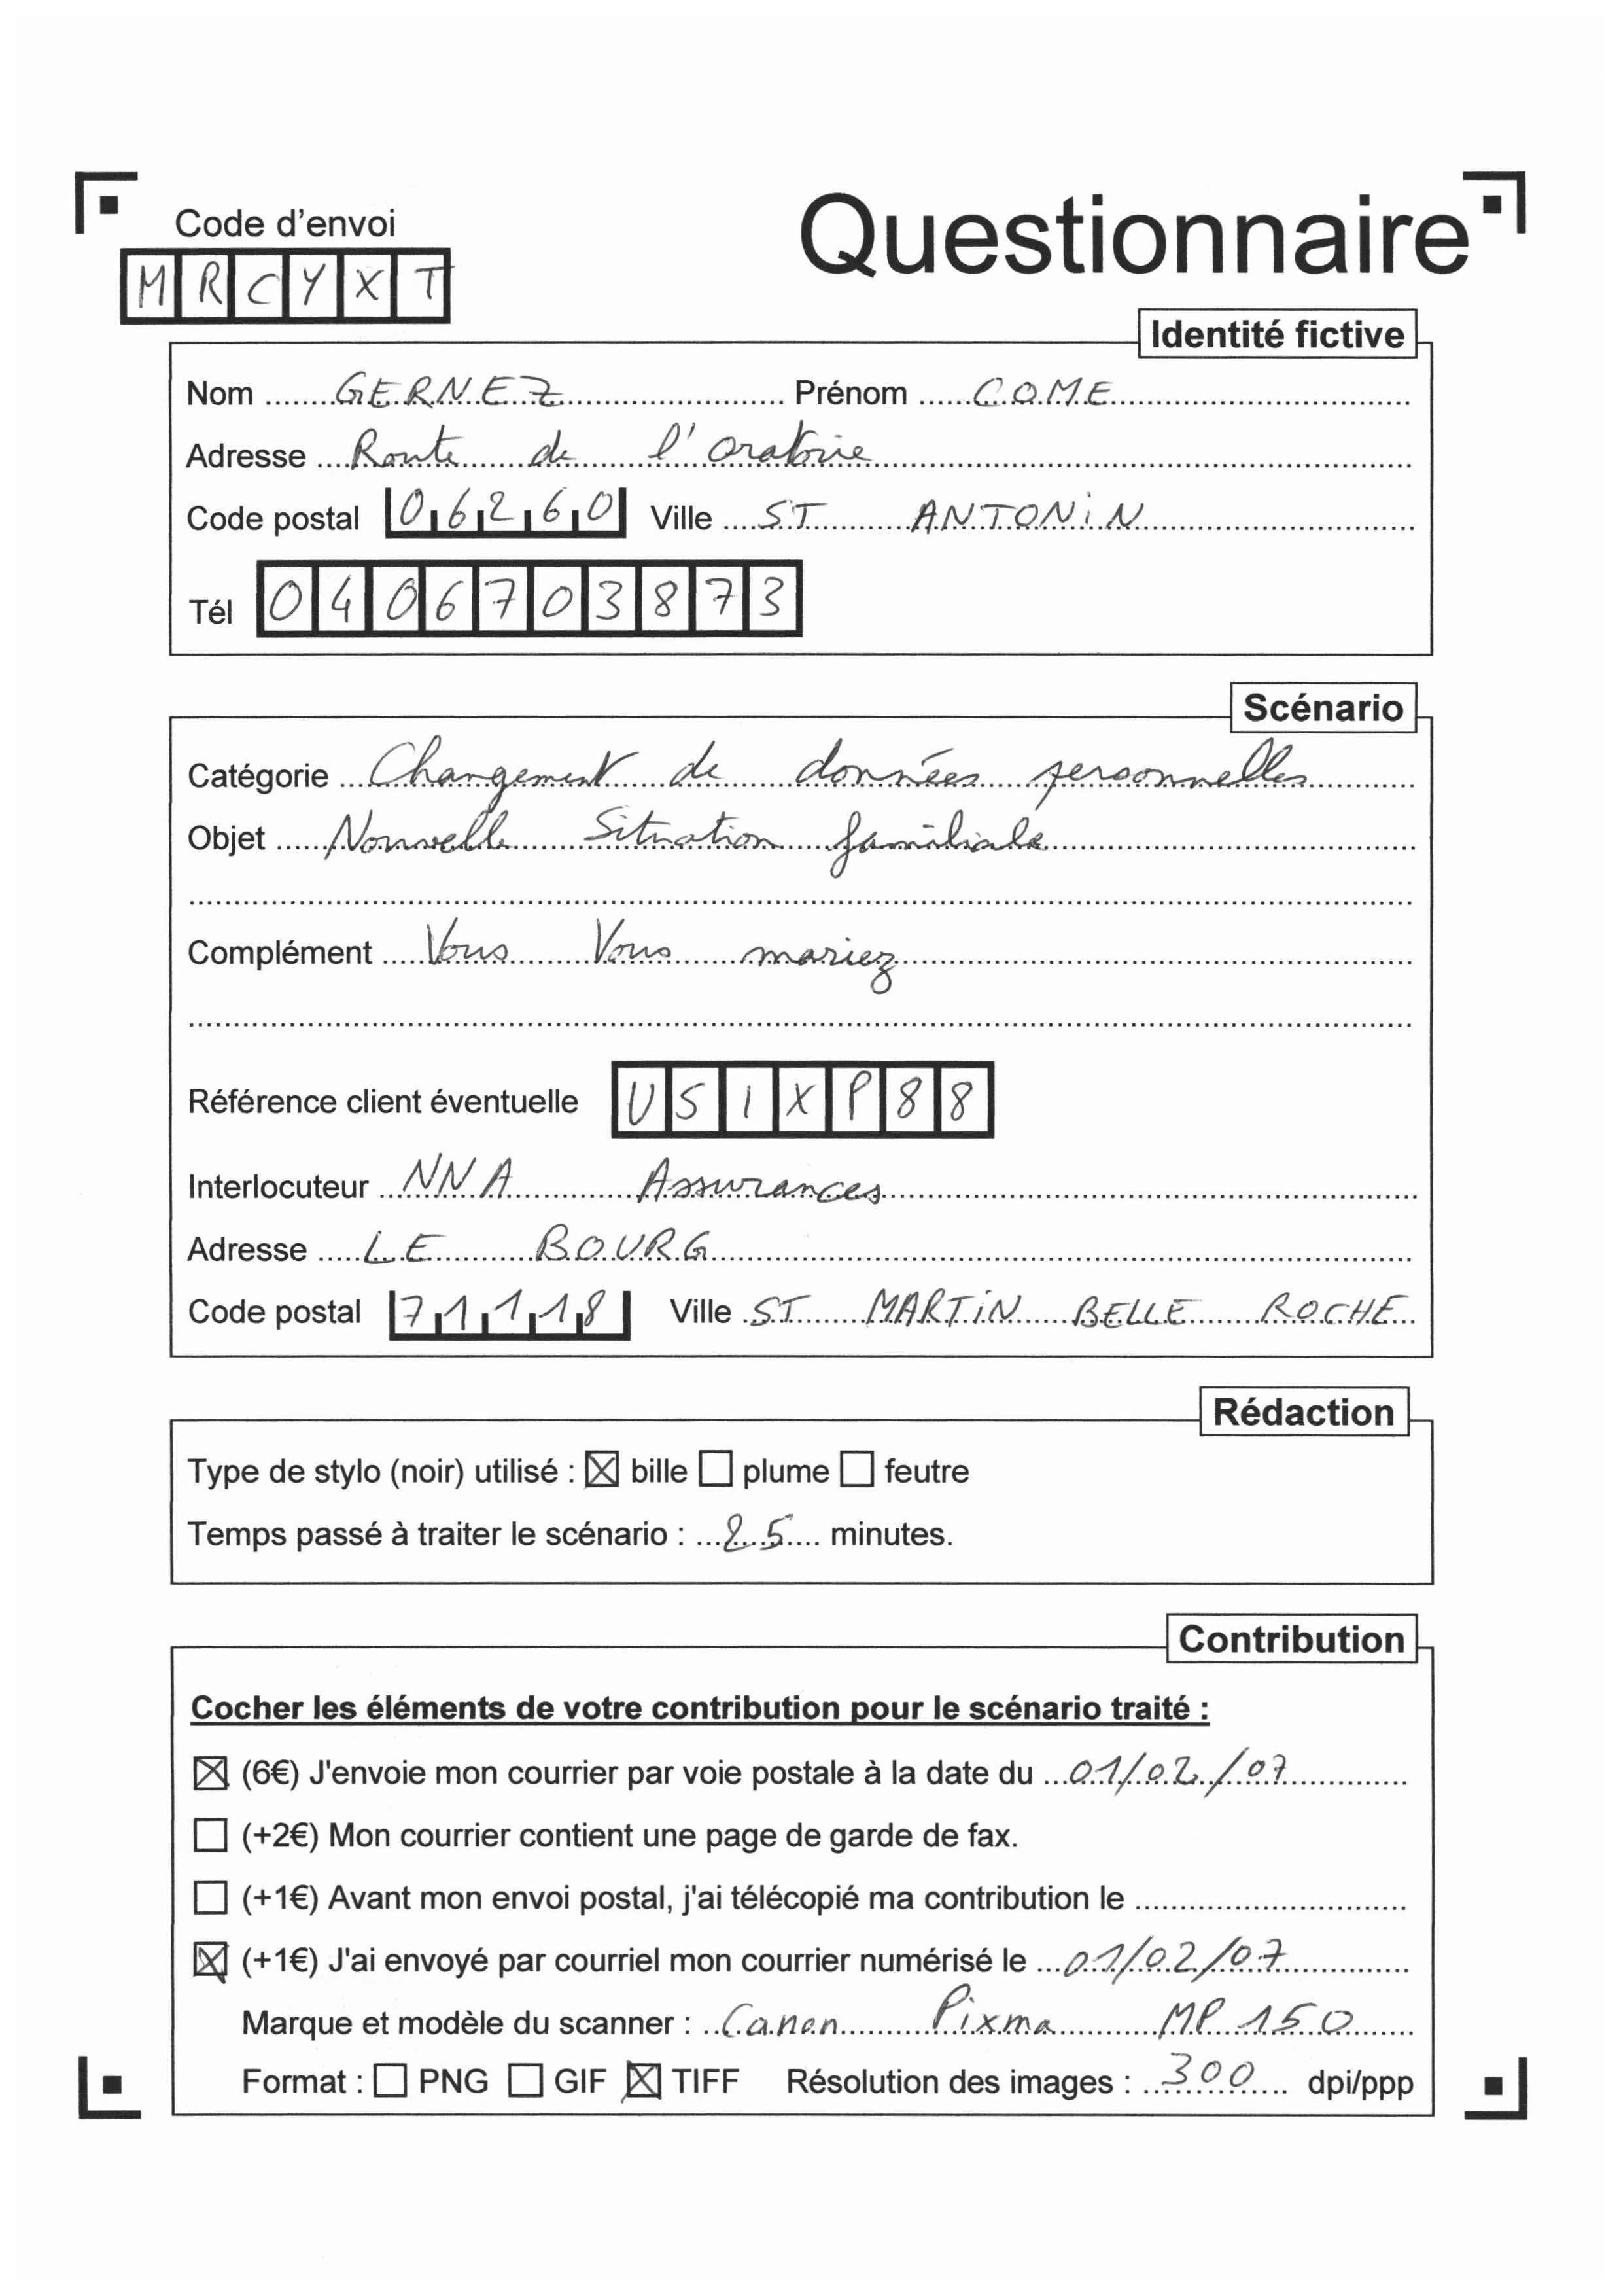 Code d'envoi
Questionnaire
MRCYXT
Identité fictive
Nom GERNEZ Prénom COME
Adresse Route de l'oratoire
Code postal 06260 Ville ST ANTONIN
Tél 0406703873
Scénario
Catégorie Changement de données personnelles
Objet Nouvelle Situation familiale
Complément Vous Vous mariez
Référence client éventuelle USIXP88
Interlocuteur NNA Assurances
Adresse LE BOURG
Code postal 71118 Ville ST MARTIN BELLE ROCHE
Rédaction
Type de stylo (noir) utilisé : ☒ bille ☐ plume ☐ feutre
Temps passé à traiter le scénario : 25 minutes.
Contribution
Cocher les éléments de votre contribution pour le scénario traité :
☒ (6€) J'envoie mon courrier par voie postale à la date du 01/02/07
☐ (+2€) Mon courrier contient une page de garde de fax.
☐ (+1€) Avant mon envoi postal, j'ai télécopié ma contribution le
☒ (+1€) J'ai envoyé par courriel mon courrier numérisé le 01/02/07
Marque et modèle du scanner : Canon Pixma MP 150
Format : ☐ PNG ☐ GIF ☒ TIFF Résolution des images : 300 dpi/ppp